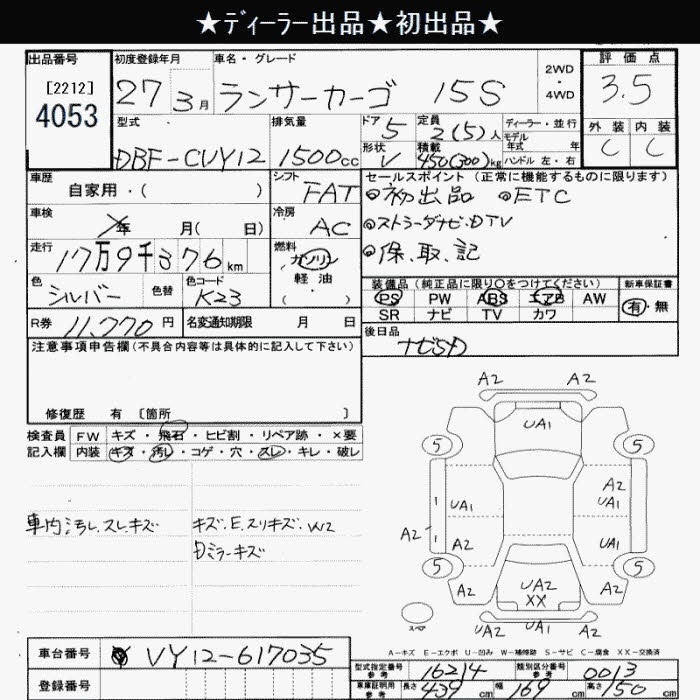 ★ディーラー出品★初出品★
出品番号 初度登録年月 車名・グレード 2WD・4WD 評価点
[2212]
4053
27 3月 ランサーカーゴ 15S 3.5
型式 排気量 ドア 5 定員 2(5)人 ディーラー・並行 外装 内装
モデル年式 年
DBF-CVY12 1500cc 形状 V 積載 450(300)kg ハンドル 左・右 C C
車歴 自家用・( ) シフト FAT セールスポイント (正常に機能するものに限ります)
◎初出品 ◎ETC
車検 年 月( 日) 冷房 AC
◎ストラーダナビ.DTV
走行 17万9千376km 燃料 ガソリン
軽油
( )
◎保.取.記
色 シルバー 色替 色コード K23
装備品 (純正品に限り○をつけてください) 新車保証書
PS PW ABS エアB AW 有・無
SR ナビ TV カワ
R券 11,770円 名変通知期限 月 日
後日品
注意事項申告欄(不具合内容等は具体的に記入して下さい)
修復歴 有 〔箇所 〕
検査員 FW キズ・飛石・ヒビ割・リペア跡・×要
記入欄 内装 キズ・汚レ・コゲ・穴・スレ・キレ・破レ
車内汚レ.スレ.キズ キズ.E.スリキズ.W2
ミラーキズ
A2 A2
UA1
5 5
A2
1 UA1 UA1
A2 1 A2 UA1
5 5
A2 UA2 A2
XX
UA2 UA1 A2
スペア
A-キズ E-エクボ U-凹み W-補修跡 S-サビ C-腐食 XX-交換済
車台番号 VY12-617035
登録番号
型式指定番号 参考 16214 類別区分番号 参考 0013
車庫証明用 参考 長さ 439cm 幅 169cm 高さ 150cm